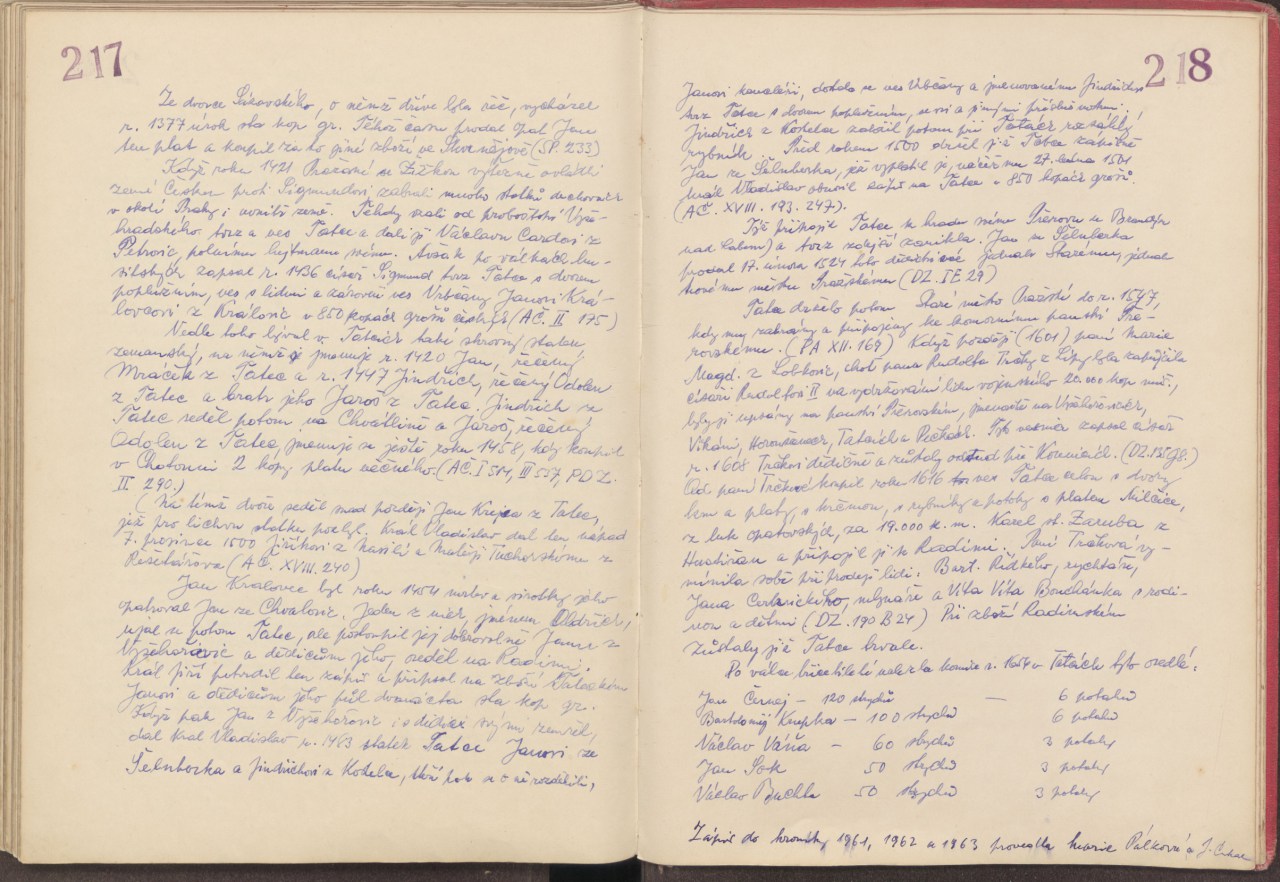 217
Ze dvorce Sázavského, o němž dříve byla řeč, vycházel
r. 1377 úrok sta kop gr. Téhož času prodal opat Jan
ten plat a koupil za to jiné zboží ve Skvrnějově (SP. 233)
Když roku 1421 Pražané se Žižkou vítězně ovládli
země Českou proti Sigmundovi zabrali mnoho statků duchovních
v okolí Prahy i uvnitř země. Tehdy vzali od probošství Vyše-
hradského tvrz a ves Tatce a dali ji Václavu Cardovi z
Petrovic polnímu hejtmanu svému. Avšak po válkách hu-
sitských zapsal r. 1436 císař Sigmund tvrz Tatce s dvorem
poplužním, ves s lidmi a zároveň ves Vrbčany Janovi Krá-
lovcovi z Královic v 850 kopách grošů českých (AČ. II 175)
Vedle toho býval v Tatcích také skrovný statek
zemanský, na němž se jmenuje r. 1420 Jan, řečený
Mráček z Tatec a r. 1447 Jindřich, řečený Odolen
z Tatec a bratr jeho Jaroš z Tatec. Jindřich ze
Tatec seděl potom na Chvátlině a Jaroš, řečený
Odolen z Tatec, jmenuje se ještě roku 1458, kdy koupil
v Chotouni 2 kopy platu věčného. (AČ. I 514, III 557, PDZ.
II 290.)
(Na témž dvoře seděl snad později Jan Krejca z Tatec,
jež pro lichvu statku pozbyl. Král Vladislav dal ten nápad
7. prosince 1500 Jiříkovi z a Matěji Tuchorskému z
Řešetářova (AČ. XVIII. 240)
Jan Kralovec byl roku 1454 mrtev a sirotky jeho
opatroval Jan ze Chvalovic. Jeden z nich, jménem Oldřich,
ujal se potom Tatec, ale postoupil jej dobrovolně Janu z
Vyžehořovic a dědicům jeho, seděl na Radimi.
Král Jiří potvrdil ten zápis a připsal na zboží Tateckém
Janovi a dědicům jeho půl dvanácta sta kop gr.
Když pak Jan z Vyžehořovic i s dětmi svými zemřel,
dal král Vladislav r. 1463 statek Tatce Janovi ze
Šelmberka a Jindřichovi z Kotelce, kteří pak se o ně rozdělili,
218
Janovi kancléři, dostala se ves Vrbčany a jmenovanému Jindřichu
tvrz Tatce s dvorem poplužním, vsi a jinými příslušnostmi.
Jindřich z Kotelce založil potom při Tatcích rozsáhlý
rybník. Před rokem 1500 držel již Tatce zápisně
Jan ze Šelmberka, jež vyplatil je, načež mu 27. ledna 1501
král Vladislav obnovil zápis na Tatce v 850 kopách grošů.
(AČ. XVIII. 193. 247).
Týž připojil Tatce ke hradu svému Přerovu (u Brandýsa
nad Labem) a tvrz zdejší zanikla. Jan ze Šelmberka
prodal 17. února 1524 toto dědictví jednak Starému, jednak
Novému městu Pražskému (DZ. I E 29)
Tatce drželo potom Staré město Pražské do r. 1547,
kdy mu zabrány a připojeny ke komornímu panství Pře-
rovskému. (PA XII. 169) Když později (1601) paní Marie
Magd. z Lobkovic, choť pana Rudolfa Trčky z Lípy byla zapůjčila
císaři Rudolfovi II na vydržování lidu vojenského 20.000 kop míš.,
byly jí upsány na panství Přerovském, jmenovitě na Vyžehořovicích,
Vikáni, Horoušanech, Tatcích a Pečkách. Tyto vesnice zapsal císař
r. 1608 Trčkovi dědičně a zůstaly odtud při Kounicích. (DZ.
Od paní Trčkové koupil roku 1616 tu ves Tatce celou s dvory
lem a platy, s krčmou, s rybníky a potoky s platem Milčice,
z luk opatovských, za 19.000 k. m. Karel st. Záruba z
Hustiřan a připojil ji k Radimi. Paní Trčková vy-
mínila sobě při prodeji lidi: Bart. Řídkého, rychtáře,
Jana Cerhnického, mlynáře a Víta Víta Bouchánka s rodi-
nou a dětmi (DZ. 190 B 24) Při zboží Radimském
zůstaly již Tatce trvale.
Po válce třicetileté nalezla komise r. 1654 v Tatcích tyto osedlé:
Jan Černej — 120 strychů — 6 potahů
Bartoloměj Krupka — 100 strychů 6 potahů
Václav Váňa — 60 strychů 3 potahy
Jan Sok 50 strychů 3 potahy
Václav Buchta 50 strychů 3 potahy
Zápis do kroniky 1961, 1962 a 1963 provedla Marie Pálková a J.